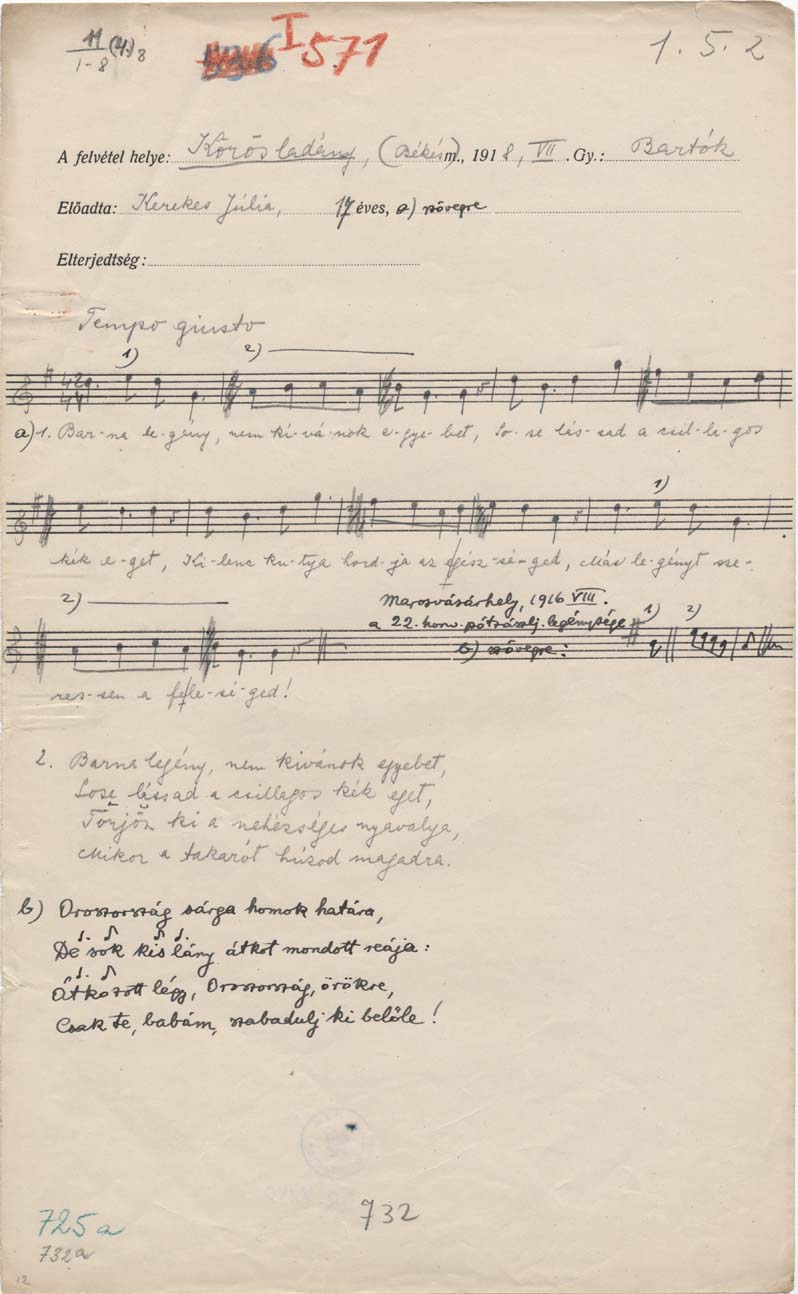 11 (4.) 8
1-8
I 571
1. 5. 2
A felvétel helye: Körösladány, (Békés m., 1918, VII. Gy.: Bartók
Előadta: Kerekes Júlia, 17 éves, a) szövegre
Elterjedtség:
Tempo giusto
1) 2)
a) 1. Bar-na le-gény, nem ki-vá-nok e-gye-bet, So-se lás-sad a csil-la-gos
1)
kék e-get, Ki-lenc ku-tya hord-ja az egész-sé-ged, Más le-gényt sze-
2)
Marosvásárhely, 1916 VIII.
a 22. honv. pótzászlj. legénysége
b) szövegre: 1) 2)
res-sen a fele-sé-ged!
2. Barna legény, nem kivánok egyebet,
Sose lássad a csillagos kék eget,
Törjön ki a nehézséges nyavalya,
Mikor a takarót húzod magadra.
b) Oroszország sárga homok határa,
De sok kis lány átkot mondott reája:
Átkozott légy, Oroszország, örökre,
Csak te, babám, szabadulj ki belőle!
732
725a
732a
12